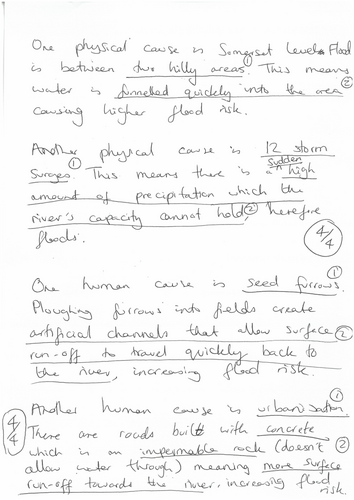 One physical cause is Somerset Levels Flood
is between two hilly areas. ① This means
water is funnelled quickly into the area ②
causing higher flood risk.
Another physical cause is 12 storm
surges. ① This means there is a sudden high
amount of precipitation which the
river's capacity cannot hold, ② therefore
floods.
4/4
One human cause is seed furrows. ①
Ploughing furrows into fields create
artificial channels that allow surface ②
run-off to travel quickly back to
the river, increasing flood risk.
4/4
Another human cause is urbanisation. ①
There are roads built with concrete
which is an impermeable rock (doesn't ②
allow water through) meaning more surface
run-off towards the river, increasing flood
risk